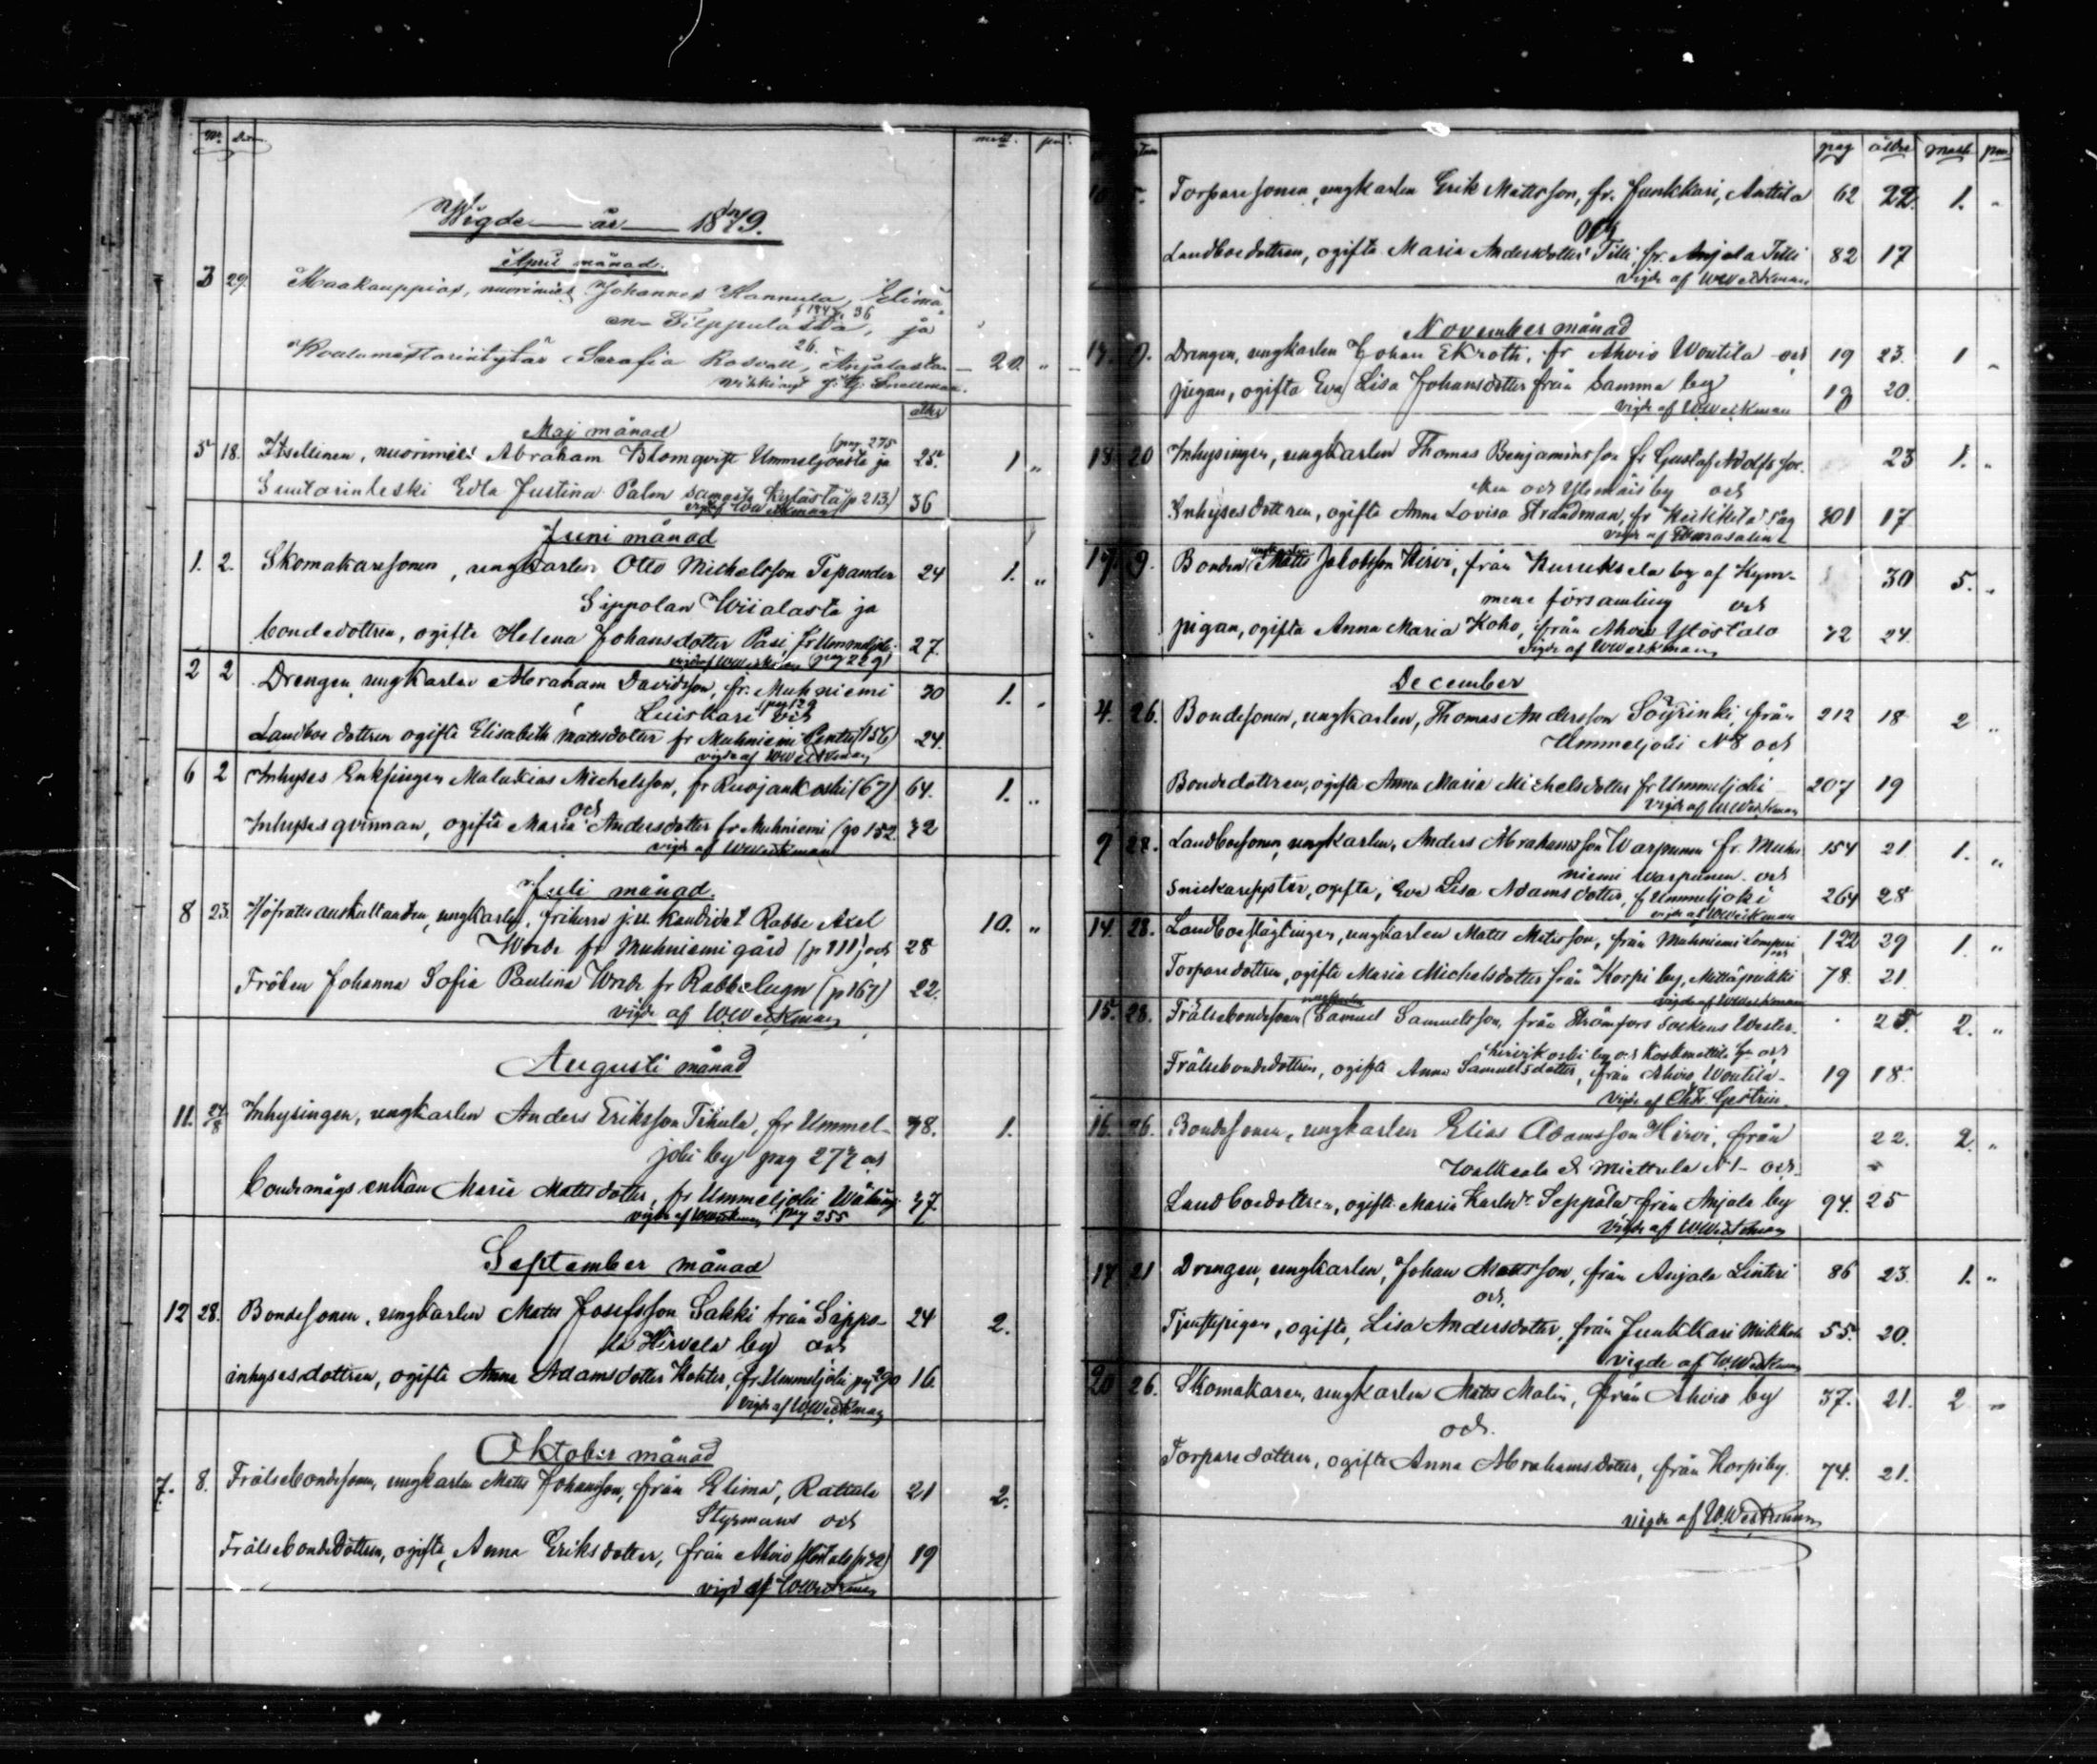 No Dat. mark. pen.
Wigde år 1879.
April månad.
3 29. Maakauppias, nuorimies Johannes Hannula, Elimä-
en Filppulasta, ja
f 1843. 36
26.
Koulumestarintytär Serafia Rosvall, Anjalasta 20 "
Vihkinyt Snellman.
ålder
Maj månad
(pag. 275
5 18. Itsellinen, nuorimies Abraham Blomqvist Ummeljoesta ja 25. 1 "
Suutarinleski Edla Justina Palm samasta kylästä (p 213) 36
Juni månad
1. 2. Skomakaresonen, ungkarlen Otto Michelsson Tepander 24 1. "
Sippolan Wiialasta ja
bondedottren, ogifta Helena Johansdotter Pasi, fr Ummeljoki 27.
vigde af WWeckman (pag 229)
2 2 Drengen ungkarlen Abraham Davidsson, fr. Muhniemi 30 1. "
Luiskari och
Landboedottren ogifta Elisabeth Mattsdotter fr Muhniemi Pentti (156) 24.
vigde af WWeckman
6 2 Inhyses Enklingen Malakias Michelsson, fr Ruojankoski (67) 64. 1. "
och
Inhysesqvinnan, ogifta Maria Andersdotter fr Muhniemi (pg 152 32
vigde af WWeckman
Juli månad.
8 23. Hofrätts auskultanten, ungkarlen, friherre jur. kandidat Rabbe Axel 10. "
Wrede fr Muhniemi gård (p 111) och 28
Fröken Johanna Sofia Paulina Wrede fr Rabbelugn (p 167) 22.
vigde af WWeckman
Augusti månad
11. 24/8 Inhysingen, ungkarlen Anders Eriksson Tikula, fr Ummel- 38. 1.
joki by pag 277 och
bondemågs enkan Maria Mattsdotter, fr Ummeljoki 37.
vigde af WWeckman pag 255
September månad
12 28. Bondesonen, ungkarlen Matts Josefsson Sakki från Sippo- 24 2.
la Hirvelä by och
inhysesdottren, ogifta Anna Adamsdotter Kohter, fr Ummeljoki pag 290 16.
vigde af WWeckman
Oktober månad
7. 8. Frälsebondesonen, ungkarlen Matts Johansson, från Elimä, Rattula 21 2.
Styrmans och
Frälsebondedottren, ogifta, Anna Eriksdotter, från Ahvio Ylöstalo (p 32) 19
vigd af WWeckman
pag ålder mark pen
10 5. Torparesonen, ungkarlen Erik Mattsson, fr. Junkkari, Anttila 62 22. 1. "
och
Landboedottren, ogifta Maria Andersdotter Tilli, fr. Anjala Tilli 82 17
vigde af WWeckman
November månad
13. 9. Drengen, ungkarlen Johan Ekroth, fr Ahvio Woutila och 19 23. 1 "
pigan, ogifta Eva Lisa Johansdotter från Samma by 19 20.
vigde af WWeckman
18 20 Inhysingen, ungkarlen Thomas Benjaminsson fr Gustaf Adolfs soc- 23 1. "
ken och by och
Inhysesdottren, ogifta Anna Lovisa Strandman, fr 301 17
vigde af
19. 9. Bonden ungkarlen Matts Jakobsson Hirvi, från by af Kym- 30 5. "
mene församling och
pigan, ogifta Anna Maria Koho, från Ahvio Ylöstalo 32 24.
vigde af WWeckman
December
4. 26. Bondesonen, ungkarlen, Thomas Andersson Söyrinki, från 212 18 2 "
Ummeljoki N 8 och
Bondedottren, ogifta Anna Maria Michelsdotter fr Ummeljoki 207 19
vigde af WWeckman
9 28. Landboesonen, ungkarlen, Anders Abrahamsson Warpunen fr. Muh- 154 21 1. "
niemi Warpunen och
Snickaresyster, ogifta, Eva Lisa Adamsdotter, f Ummeljoki 264 28
vigde af WWeckman
14. 28. Landboeflägtingen, ungkarlen Matts Mattsson, från Muhniemi Lomperi 122 29 1. "
och
Torparedottren, ogifta Maria Michelsdotter från Korpi by, 78. 21.
vigde af WWeckman
15. 28. Frälsebondesonen ungkarlen Samuel Samuelsson, från Strömfors Sockens Wester- 25. 2. "
by och
Frälsebondedottren, ogifta Anna Samuelsdotter, från Ahvio, Woutila 19 18.
vigde af
16. 26. Bondesonen, ungkarlen Elias Adamsson Hirvi, från 22. 2. "
Walkeala & Miettula N 1 och
Landboedottren, ogifta Maria Karlsdr Seppälä från Anjala by 94. 25
vigde af WWeckman
17 21 Drengen, ungkarlen, Johan Mattsson, från Anjala Linteri 86 23. 1. "
och
Tjenstepigan, ogifta, Lisa Andersdotter, från Junkkari 55. 20.
vigde af W.Weckman
20 26. Skomakaren, ungkarlen Matts Malin, från Ahvio by 37. 21. 2 "
och
Torparedottren, ogifta Anna Abrahamsdotter, från Korpi by. 74. 21.
vigde af W.Weckman